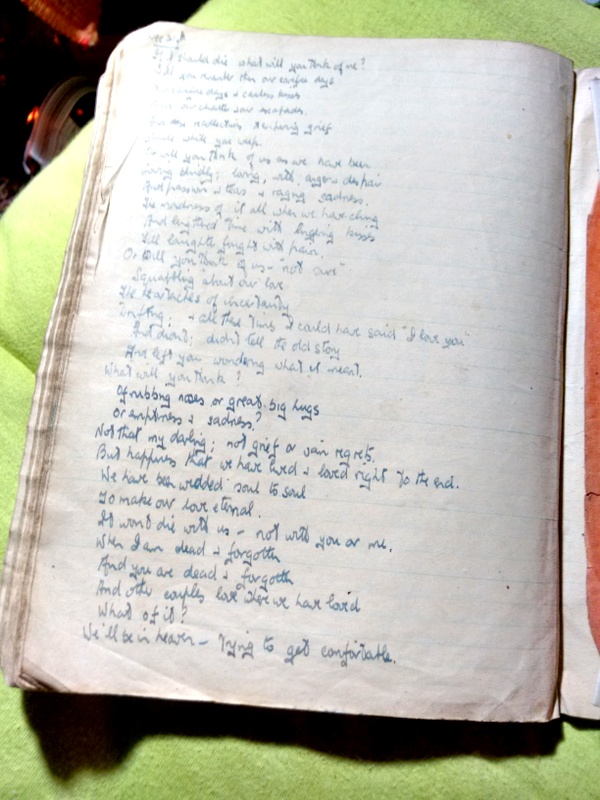 If I should die what will you think of me?
Will you remember then our carefree days
days & careless kisses
our chatter & our escapades.
recollection tempering grief
while you weep.
Or will you think of us as we have been
loving blindly; loving, with anger & despair
And passion & tears & raging sadness.
The madness of it all when we have clung
And lengthened time with lingering kisses
Till laughter fought with pain.
Or will you think of us - "not ours"
Squabbling about our love
The heartaches of uncertainty
Drifting; & all these times I could have said "I love you"
But didn't; didn't tell the old story
And left you wondering what it meant.
What will you think?
Of rubbing noses or great, big hugs
Or emptiness & sadness?
Not that my darling; not grief or vain regrets.
But happiness that we have lived & loved right to the end.
We have been wedded soul to soul
To make our love eternal.
It won't die with us - not with you or me.
When I am dead & forgotten
And you are dead & forgotten
And other couples love where we have loved
What of it?
We'll be in heaven - trying to get comfortable.